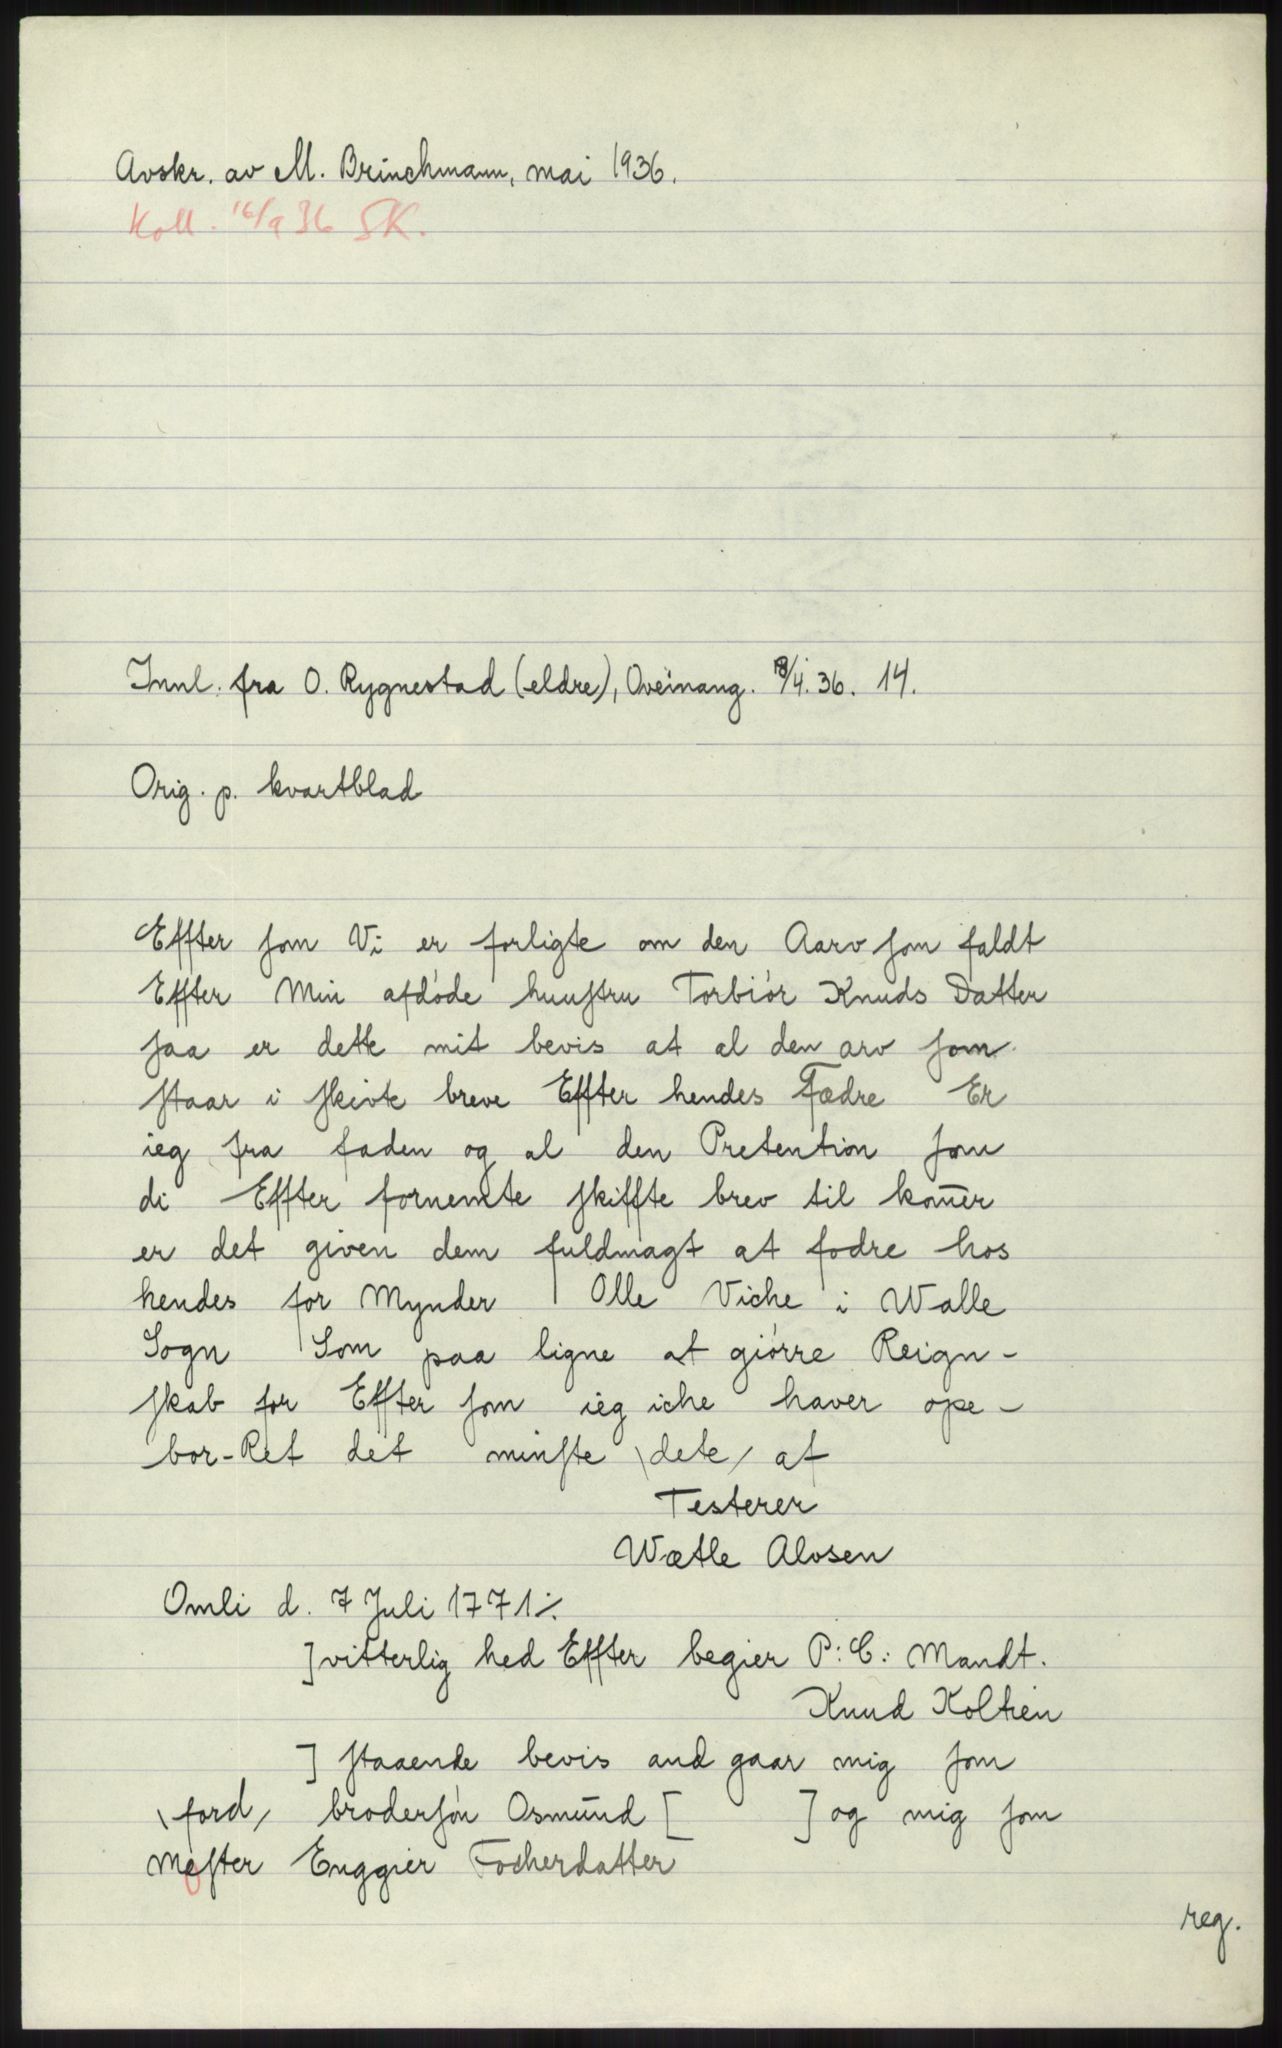 Avskr. av M. Brinchmann, mai 1936.
Koll. 16/9 36 SK.
Innl. fra O. Rygnestad (eldre), Oveinang. 18/4. 36. 14.
Orig. p. kvartblad
Effter som Vi er forligte om den Aarv som faldt
Effter Min afdøde huustru Torbiór Knuds Datter
saa er dette mit bevis at al den arv som
staar i skivte breve Effter hendes Fædre Er
ieg fra faden og al den Pretention som
di Effter fornemte skiffte brev til kom̅er
er det given dem fuldmagt at fodre hos
hendes for Mynder Olle Viche i Walle
Sogn Som paa ligne at giórre Reign-
skab for Effter som ieg iche haver ope-
bor-Ret det minste \dete/ at
Testerer
Wætle Alvsen
Omli d. 7 Juli 1771 ⁒
] vitterlig hed Effter begier P: C: Mandt.
Knud Koltien
] staaende bevis and gaar mig som
\ford/ brodersón Osmund [ ] og mig som
Mester Enggier Focherdatter
reg.